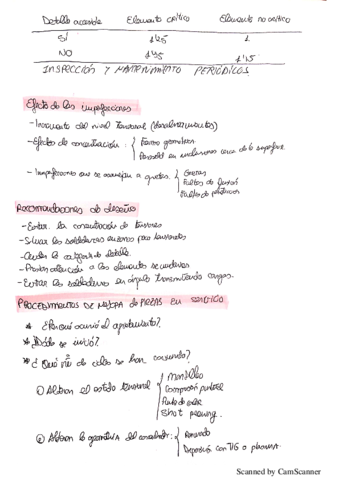 Detalle accesible Elemento crítico Elemento no crítico
SÍ 1'25 1
NO 1'35 1'15
INSPECCIÓN Y MANTENIMIENTO PERIÓDICOS
Efecto de las imperfecciones
- Incremento del nivel tensional (desalineamientos)
- Efectos de concentración: Forma geométrica
Porosidad en inclusiones cerca de la superficie
- Imperfecciones que se asemejan a grietas: Grietas
Faltas de fusión
Faltas de penetración
Recomendaciones de diseño
- Evitar la concentración de tensiones
- Situar las soldaduras en zonas poco tensionadas
- Cuidar la categoría de detalle.
- Prestar atención a los elementos secundarios
- Evitar las soldaduras en ángulo transmitiendo cargas.
PROCEDIMIENTOS DE MEJORA de PIEZAS EN SERVICIO
* ¿Por qué ocurrió el agrietamiento?
* ¿Dónde se inició?
* ¿Qué nº de ciclos se han consumido?
① Alteran el estado tensional Martilleo
Compresión puntual
Punto de calor
Shot peening.
② Alteran la geometría del concentrador: Ranurado
Deposición con TIG o plasma.
Scanned by CamScanner